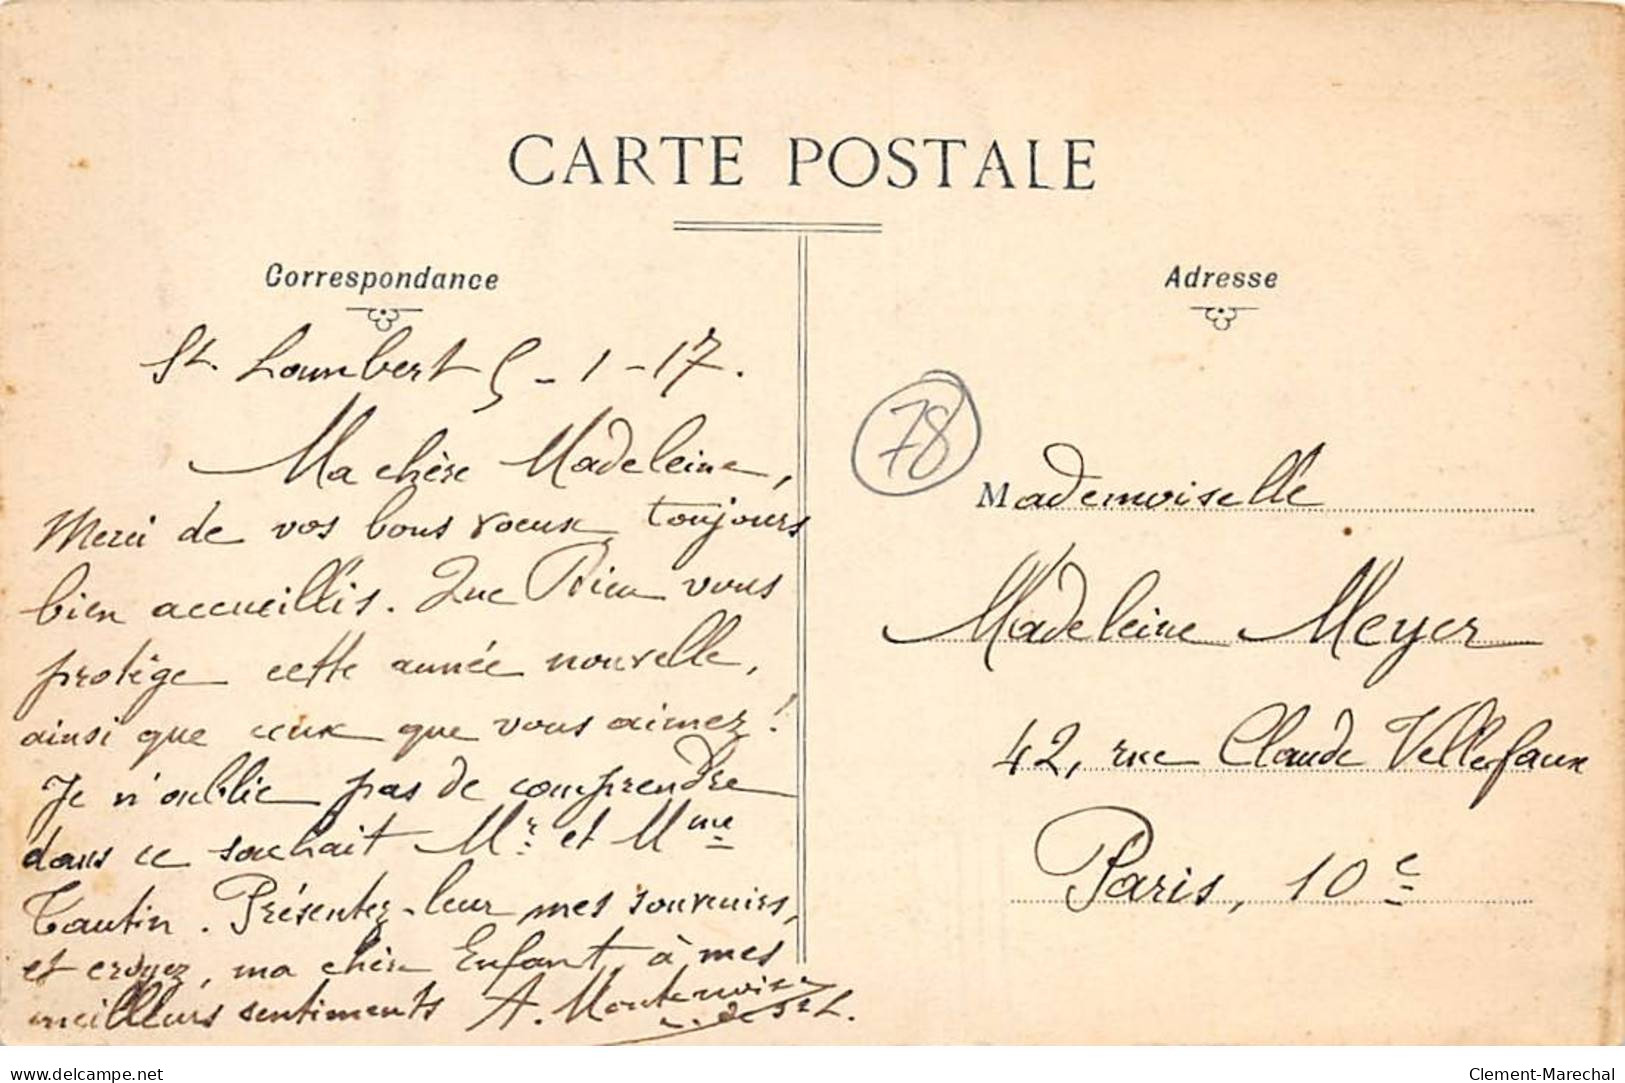 CARTE POSTALE
Correspondance
St. Lambert 5-1-17.
Ma chère Madeleine,
Merci de vos bons voeux toujours
bien accueillis. Que Dieu vous
protège cette année nouvelle,
ainsi que ceux que vous aimez!
Je n'oublie pas de comprendre
dans ce souhait Mr et Mme
Tautin. Présentez-leur mes souvenirs,
et croyez, ma chère Enfant, à mes
meilleurs sentiments A.
Adresse
78
Mademoiselle
Madeleine Meyer
42, rue Claude Vellefaux
Paris, 10e
Clement-Marechal
www.delcampe.net